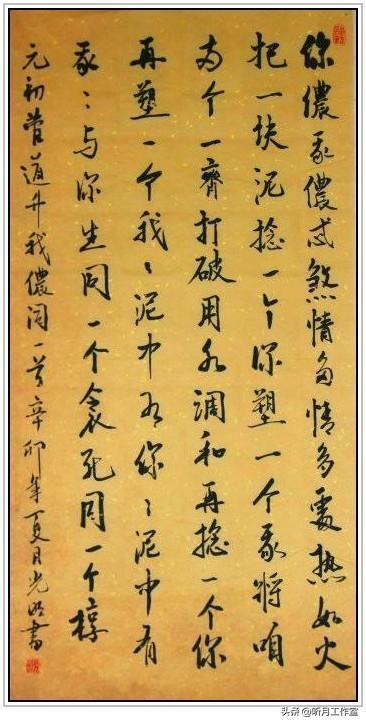 你儂我儂忒煞情多情多處熱如火
把一块泥捻一个你塑一个我將咱
两个一齊打破用水調和再捻一个你
再塑一个我〻泥中有你〻泥中有
我〻与你生同一个衾死同一个椁
元初管道升我儂词一首辛卯年夏月光明書
头条@昕月工作室